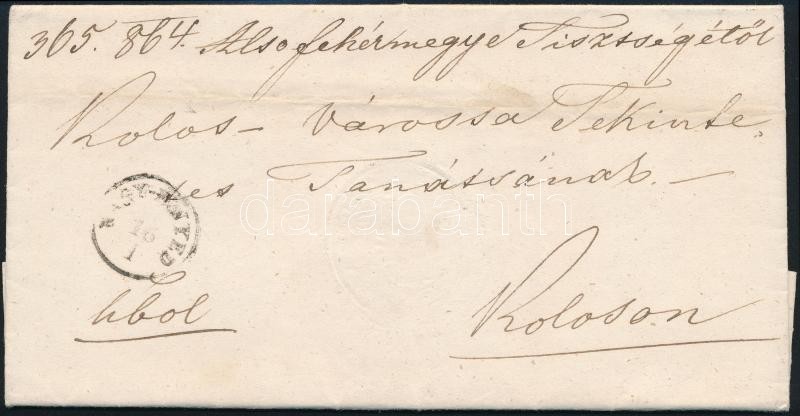 365. 864. Alsofehérmegye Tisztségétől
Kolos- Várossa Tekinte,
tes Tanátsának. -
NAGY-ENYED
16
1
hbol
Koloson
darabanth